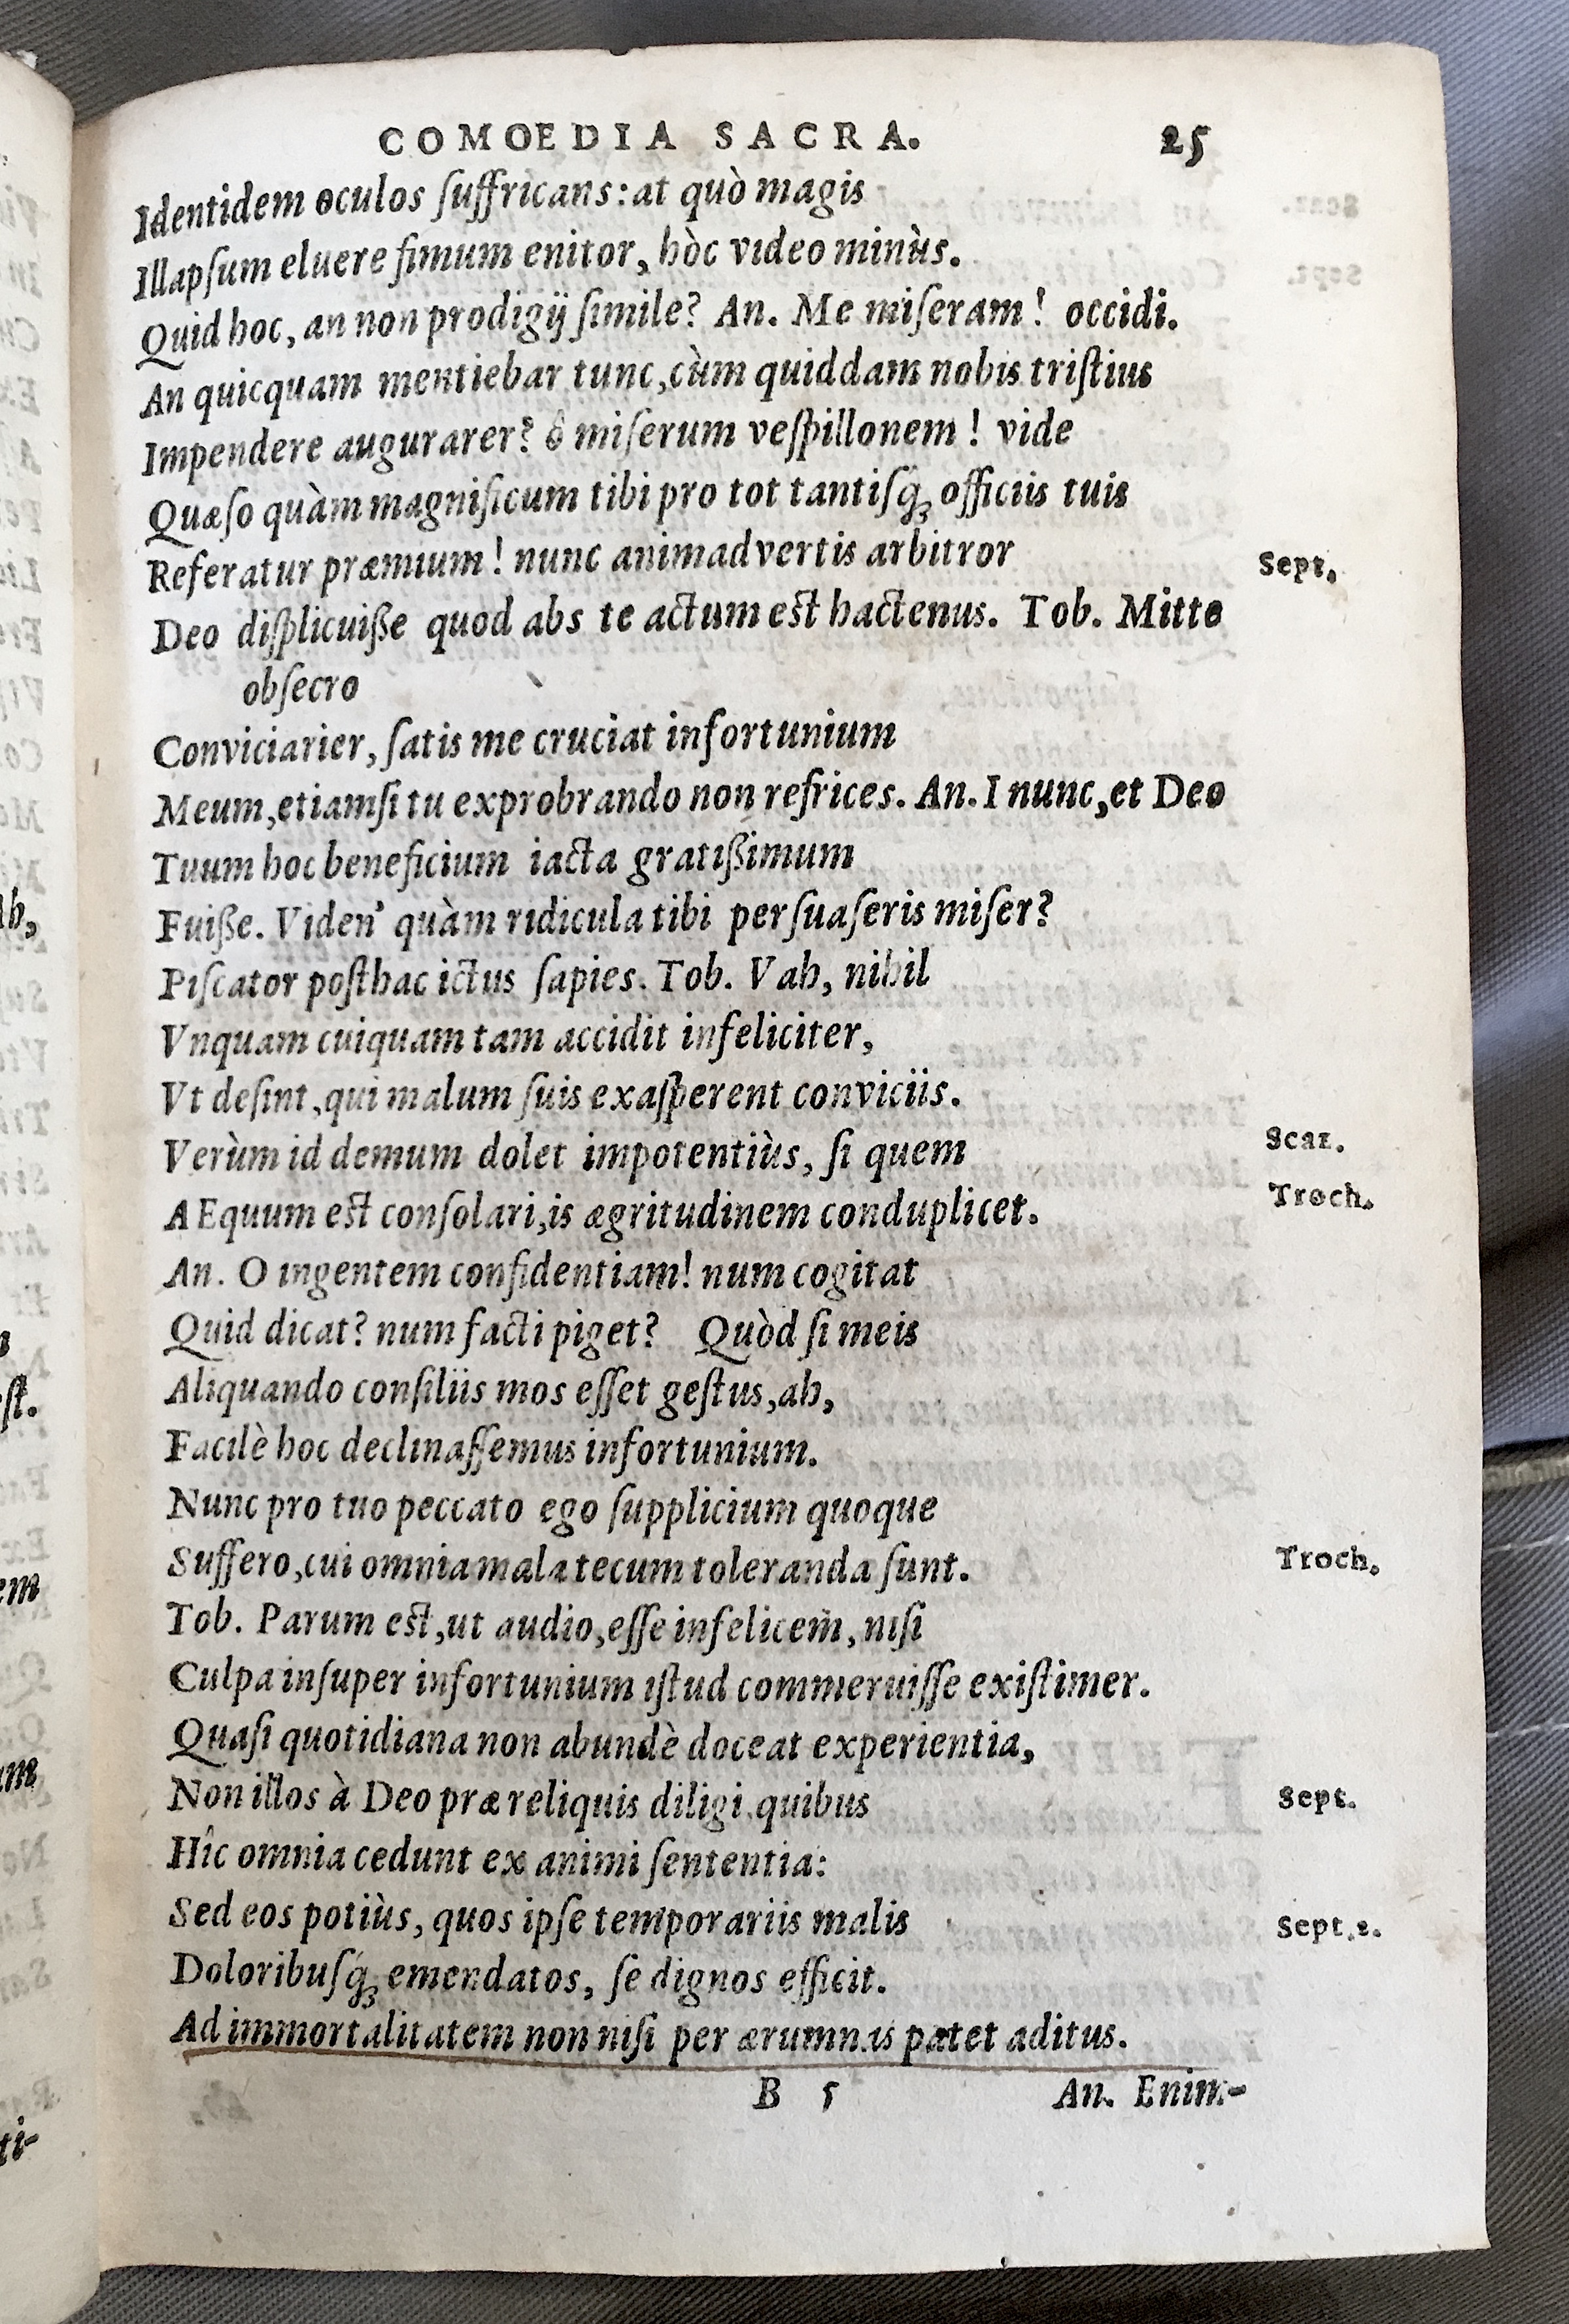 COMOEDIA SACRA. 25
Identidem oculos ſuffricans: at quò magis
Illapſum eluere fimum enitor, hòc video minùs.
Quid hoc, an non prodigij ſimile? An. Me miſeram! occidi.
An quicquam mentiebar tunc, cùm quiddam nobis triſtius
Impendere augurarer? ô miſerum veſpillonem! vide
Quæſo quàm magnificum tibi pro tot tantiſq́; officiis tuis
Referatur præmium! nunc animadvertis arbitror Sept.
Deo diſplicuiſſe quod abs te actum est hactenus. Tob. Mitte
obſecro
Conviciarier, ſatis me cruciat infortunium
Meum, etiamſi tu exprobrando non refrices. An. I nunc, et Deo
Tuum hoc beneficium iacta gratißimum
Fuiße. Viden' quàm ridicula tibi perſuaſeris miſer?
Piſcator poſthac ictus ſapies. Tob. Vah, nihil
Vnquam cuiquam tam accidit infeliciter,
Vt deſint, qui malum ſuis exaſperent conviciis.
Verùm id demum dolet impotentiùs, ſi quem Scaz.
AEquum est conſolari, is ægritudinem conduplicet. Troch.
An. O ingentem confidentiam! num cogitat
Quid dicat? num facti piget? Quòd ſi meis
Aliquando conſiliis mos eſſet geſtus, ah,
Facilè hoc declinaſſemus infortunium.
Nunc pro tuo peccato ego ſupplicium quoque
Suffero, cui omnia mala tecum toleranda ſunt. Troch.
Tob. Parum est, ut audio, eſſe infelicem, niſi
Culpa inſuper infortunium iſtud commeruiſſe exiſtimer.
Quaſi quotidiana non abundè doceat experientia,
Non illos à Deo præ reliquis diligi, quibus Sept.
Hîc omnia cedunt ex animi ſententia:
Sed eos potiùs, quos ipſe temporariis malis Sept.2.
Doloribuſq́; emendatos, ſe dignos efficit.
Ad immortalitatem non niſi per ærumnas patet aditus.
B 5 An. Enim-